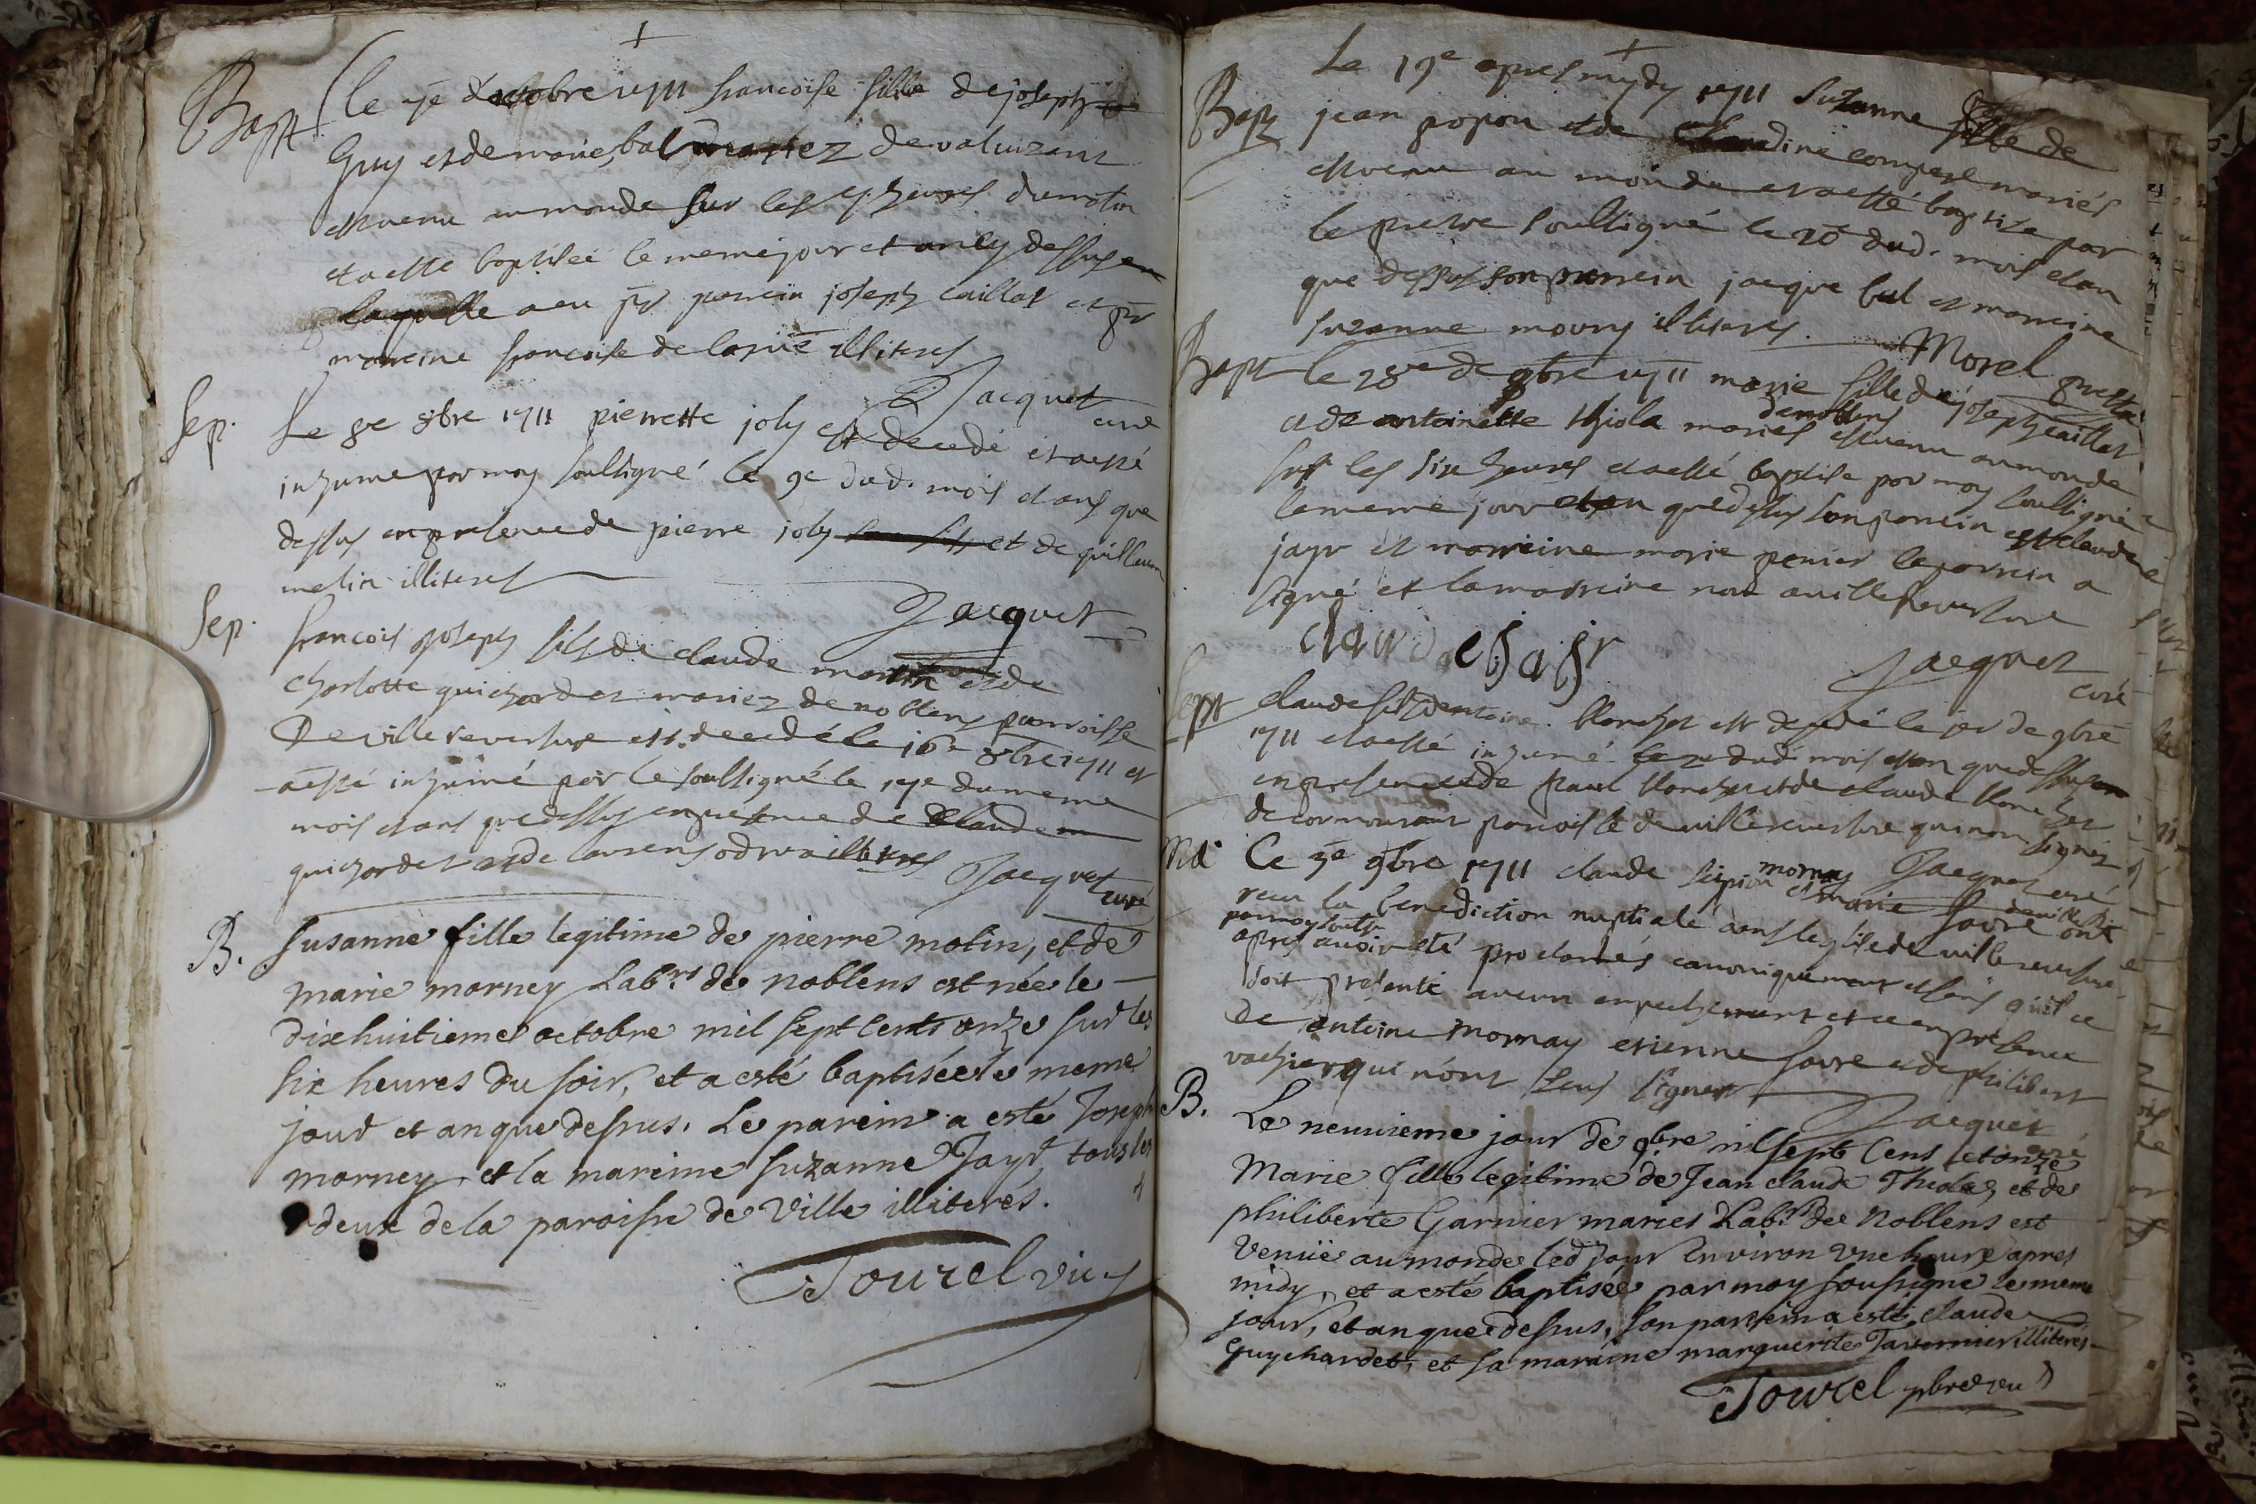 Bapt
le 7e d'octobre 1711 francoise fille de joseph
Guy et de marie bal mariez de valuizant
est venu au monde sur les 7 heures du matin
et a esté baptisée le meme jour et an cy dessus
laquelle a eu pr parrein joseph caillat et pr
marreine francoise de la rue illiteres
Jacquet curé
Sep.
Le 8e 8bre 1711 pierrette joly est decedé et a esté
inhumé par moy soussigné le 9e dud. mois et ans que
dessus en presence de pierre joly et de guillaum
melin illiteres
Jacquet
Sep.
francois joseph fils de claude martin et de
charlotte guichardet mariez de noblens parroisse
de villereversure est decedé le 16e 8bre 1711 et
a esté inhumé par le soussigné le 17e du meme
mois et ans que dessus en presence de claude
guichardet et de laurens illiteres
Jacquet curé
B.
Susanne fille legitime de pierre molin, et de
marie morney Labrs de noblens est née le
dixhuitieme octobre mil sept cents onze sur les
six heures du soir, et a esté baptisée le meme
jour et an que dessus. Le parein a esté Joseph
morney, et la mareine Suzanne Jayr, tous les
deux de la paroisse de Ville illiterés.
Tourel vic
Le 19e apres mydy 1711 Suzanne fille de
Bap
jean popon et de claudine compere mariés
est venu au monde et a esté baptisé par
le prestre soussigné le 20e dud. mois et an
que dessus son parrein jacque bal et marreine
suzanne moury illiteres.
Morel prestre
Bapt
le 28me de 9bre 1711 marie fille de joseph caillat
et de antoinette thiola mariés de noblens est venu au monde
sur les six heures et a esté baptisé par moy soussigné
le meme jour et an que dessus son parrein est claude
jayr et marreine marie penier le parrein a
signé et la marreine non a villereversure
claude Jajr
Jacquet
curé
Sept
claude fils d'antoine blonchet est decedé le 1er de 9bre
1711 et a esté inhumé le 2e dud mois et an que dessus
en presence de paul blonchet et de claude blonchet
de cormorant paroisse de villereversure qui n'ont signez
Jacquet curé
Md.
Ce 3e 9bre 1711 claude scipion mornay et marie favre de ville ont
receu la benediction nuptiale dans l'eglise de villereversure
par moy soussr
apres avoir eté proclamés canoniquement et sans qu'il se
soit presenté aucun empechement et ce en presence
de antoine mornay etienne favre et de philibert
vachier qui n'ont sceus signer
Jacquet
curé
B.
Le neuvieme jour de 9bre mil sept Cens et onze
Marie fille legitime de Jean claude Thiola, et de
philiberte Garnier mariés Labrs de Noblens est
Venuë au monde led jour Environ Vne heure apres
midy, et a esté baptisée par moy soussigné le meme
jour, et an que dessus, son parrein a esté claude
Guychardet, et sa mareine marguerite Tavernier illiteres
Tourel pbre vic